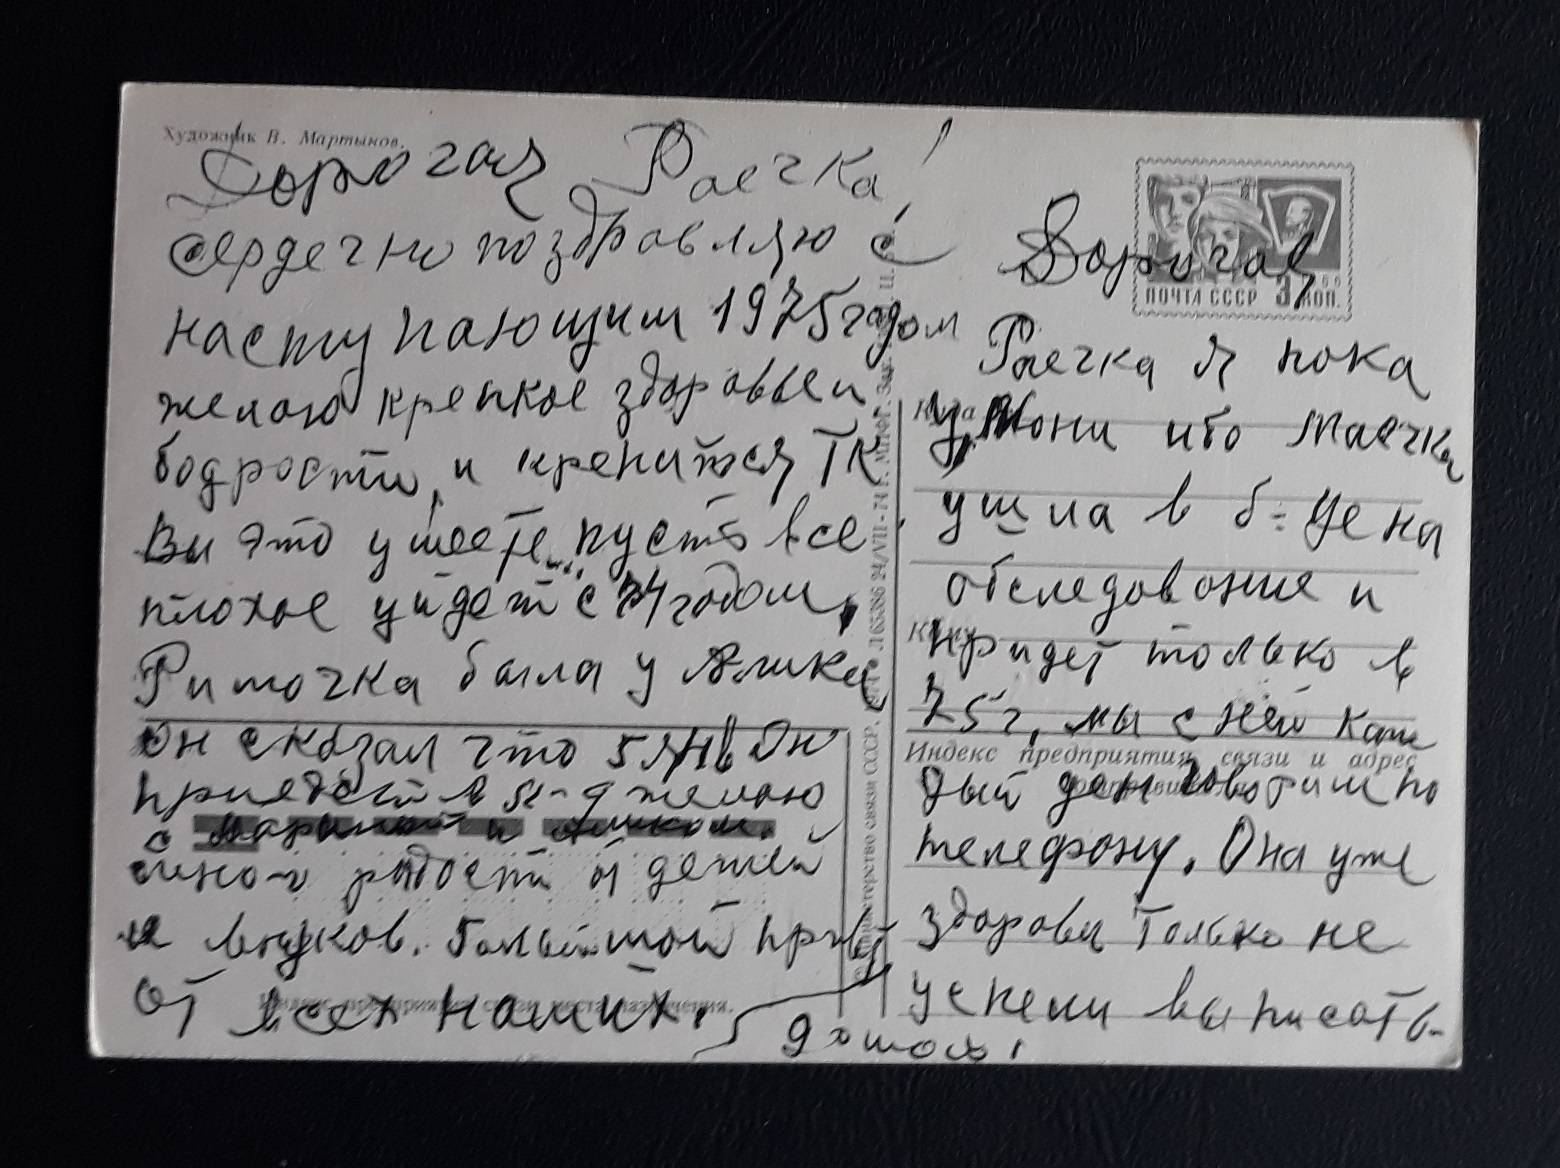 Художник В. Мартынов.
Дорогая Раечка!
сердечно поздравляю с
наступающим 1975 годом
желаю крепкое здоровье и
бодрости, и крепитесь ТК
Вы это умеете, пусть все
плохое уйдет с 74 годом,
Риточка была у Алика
Он сказал что 5 янв он
приедет в желаю
с Мариной и Аликом.
много радости от детей
и внуков. Большой прив
от всех наших.
Индекс предприятия связи места назначения.
Министерство связи СССР.
Л 65386 24/VII-74 г. МПФГ. Зак.
ПОЧТА СССР 3 КОП.
1966
Дорогая
Раечка Я пока
у Мони ибо Маечка
ушла в б-цу на
обследование и
придет только в
75 г, мы с ней каж
дый ден говорим по
телефону. Она уже
здорова Только не
успели выписать-
домой!
Куда
Кому
Индекс предприятия связи и адрес
отправителя